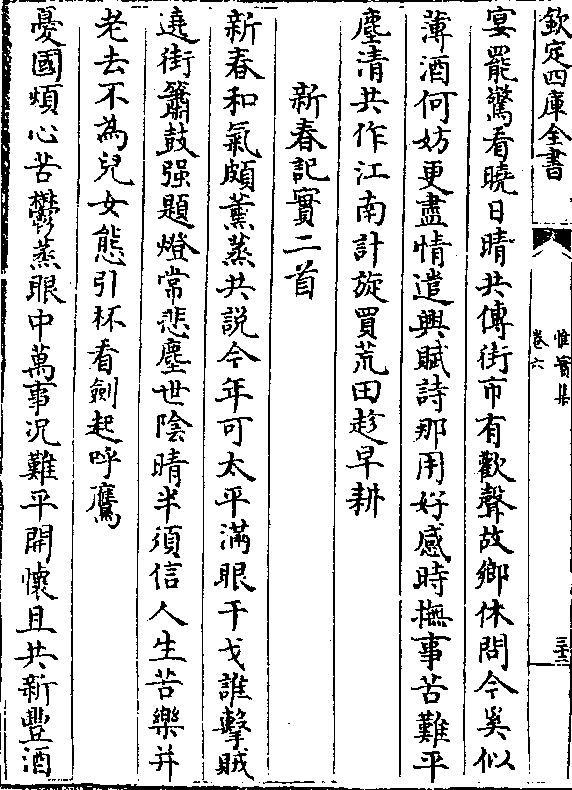 欽定四庫全書
惟實集
卷六
三十三
宴罷驚看曉日晴共傳街市有歡聲故鄉休問今奚似
薄酒何妨更盡情遣興賦詩那用好感時撫事苦難平
塵清共作江南計旋買荒田趁早耕
新春記實二首
新春和氣頗薰蒸共說今年可太平滿眼干戈誰擊賊
遶街簫鼓强題燈常悲塵世陰晴半須信人生苦樂并
老去不為兒女態引杯看劍起呼鷹
憂國煩心苦鬱蒸眼中萬事況難平開懷且共新豐酒